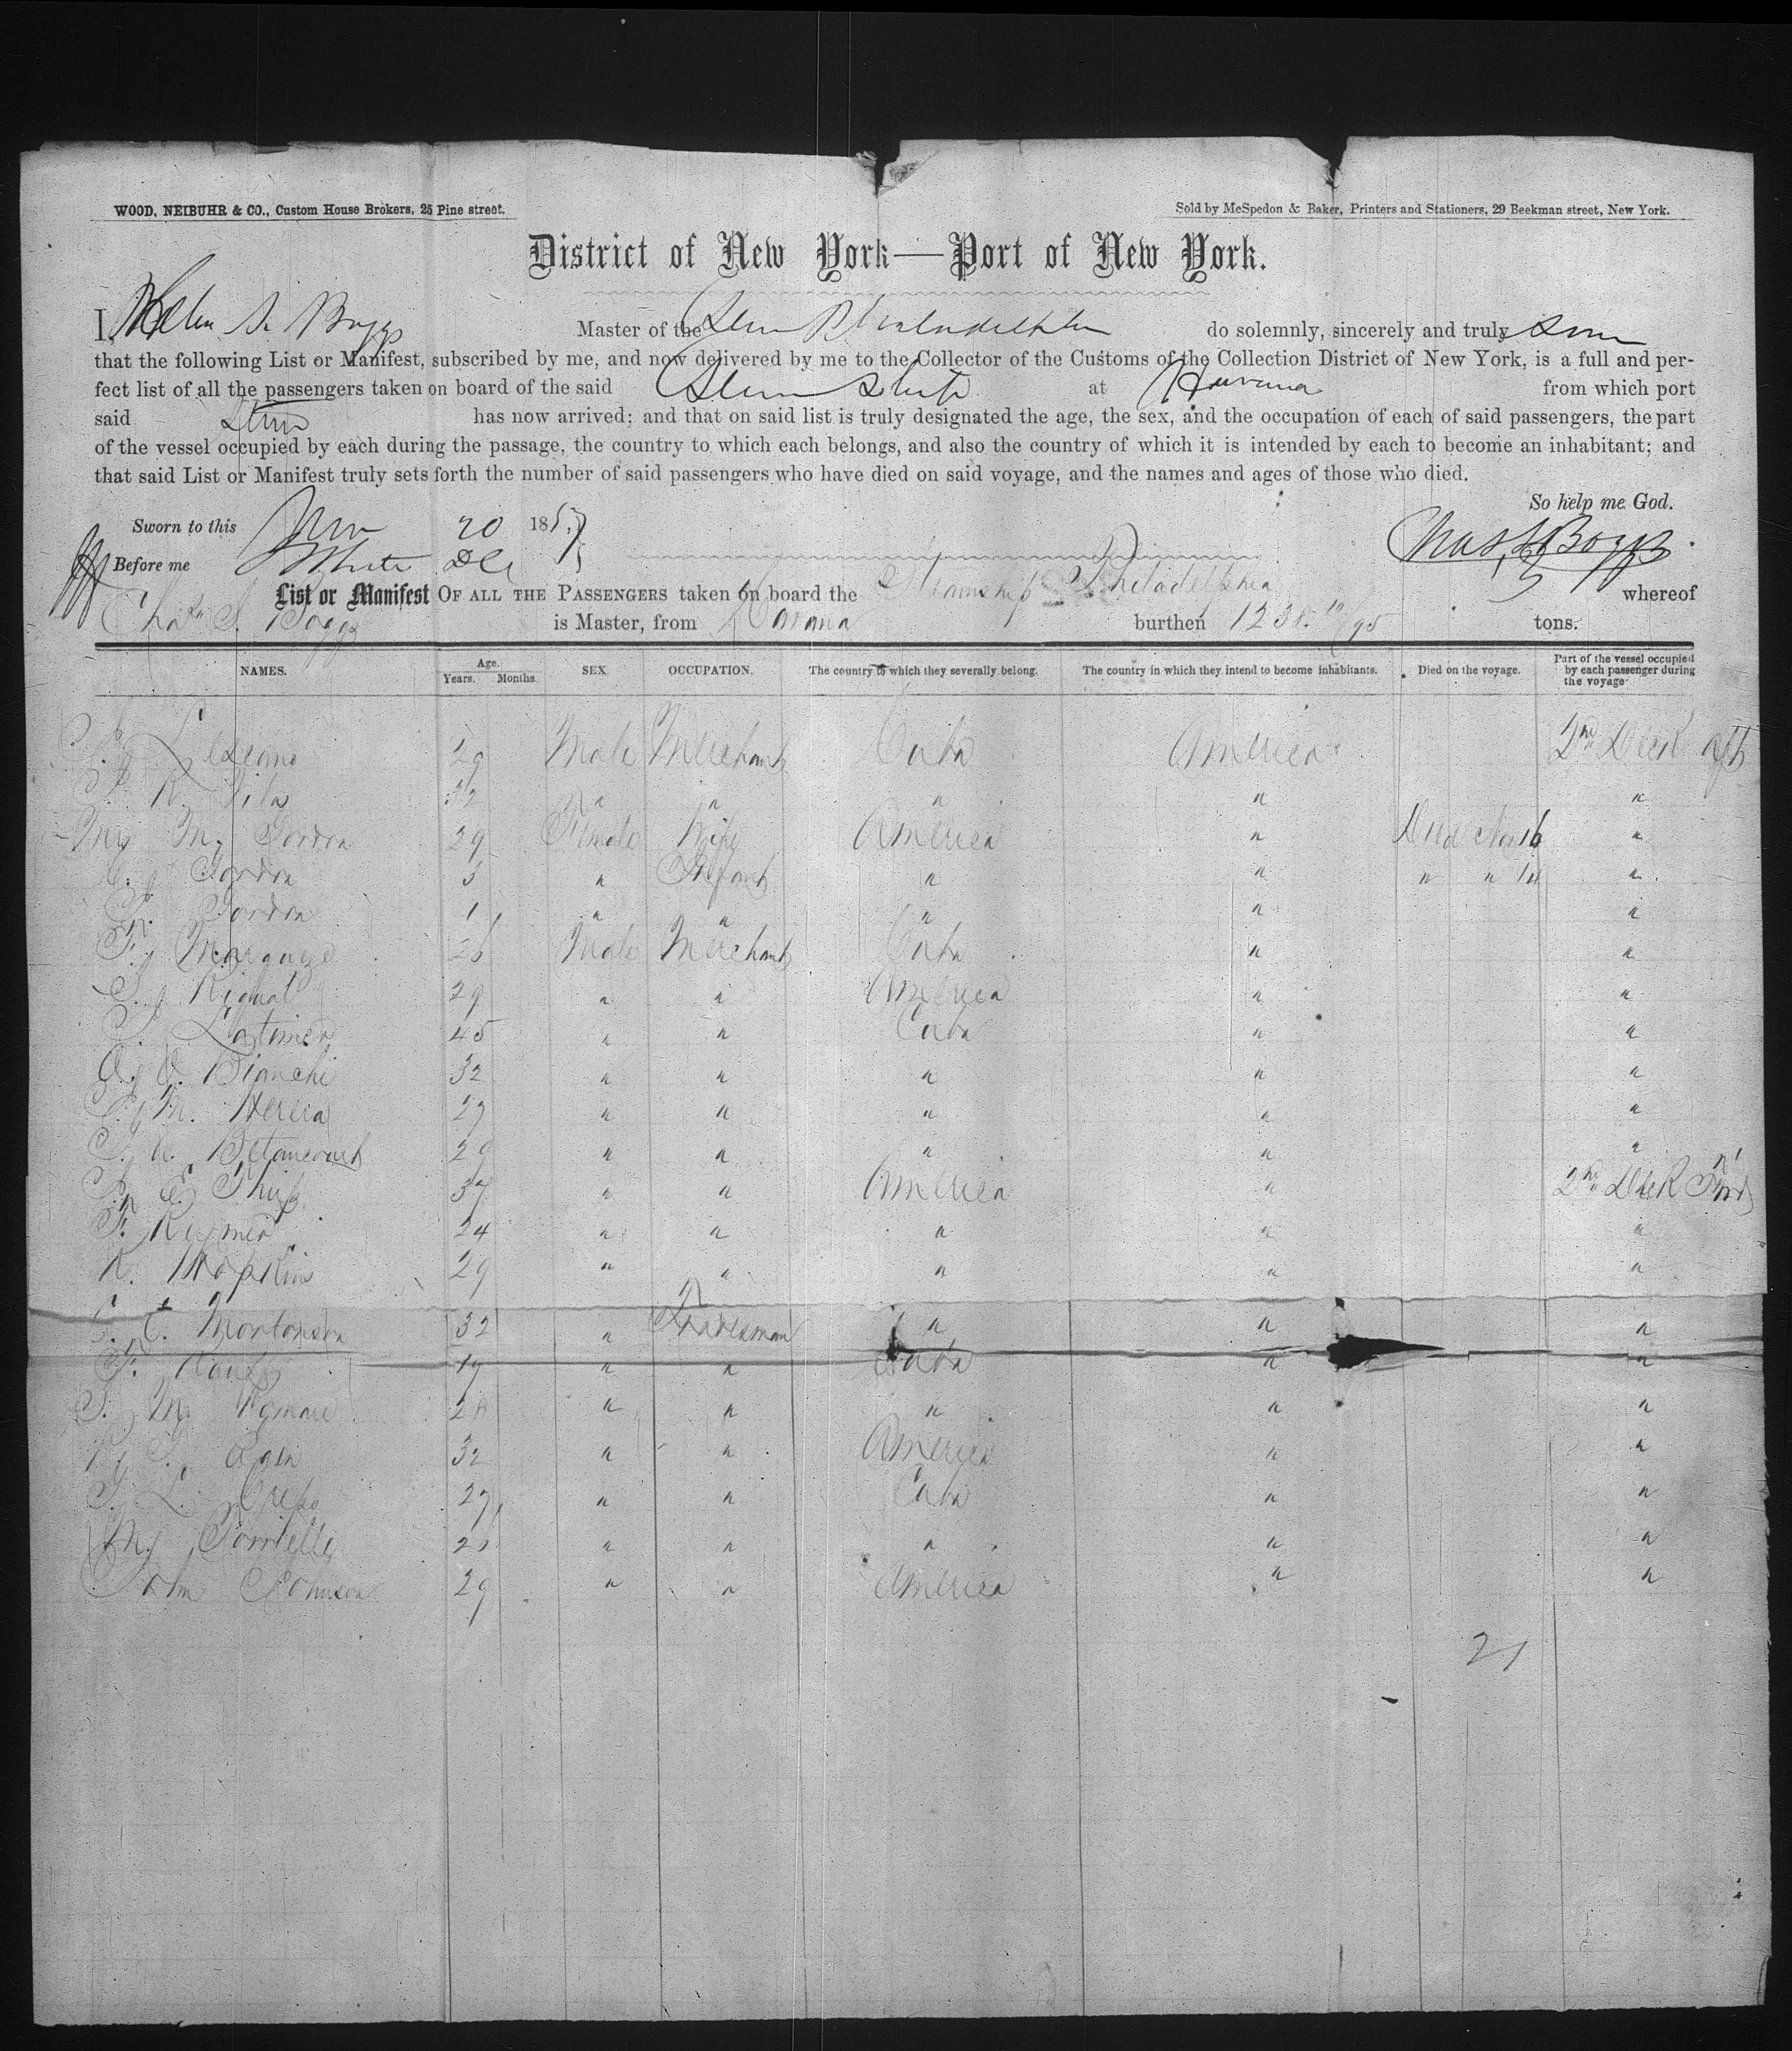 WOOD, NEIBUHR & CO., Custom House Brokers, 25 Pine street.
Sold by McSpedon & Baker, Printers and Stationers, 29 Beekman street, New York.
District of New York—Port of New York.
I, S. Boggs Master of the Philadelphia do solemnly, sincerely and truly
that the following List or Manifest, subscribed by me, and now delivered by me to the Collector of the Customs of the Collection District of New York, is a full and per-
fect list of all the passengers taken on board of the said at Havana from which port
said has now arrived; and that on said list is truly designated the age, the sex, and the occupation of each of said passengers, the part
of the vessel occupied by each during the passage, the country to which each belongs, and also the country of which it is intended by each to become an inhabitant; and
that said List or Manifest truly sets forth the number of said passengers who have died on said voyage, and the names and ages of those who died.
So help me God.
Sworn to this Nov 20 1857
Chas S Boggs
Before me White
List or Manifest OF ALL THE PASSENGERS taken on board the Steamship Philadelphia whereof
Chas S. Boggs is Master, from Havana burthen tons.
NAMES. Age. Years. Months. SEX OCCUPATION. The country to which they severally belong. The country in which they intend to become inhabitants. Died on the voyage. Part of the vessel occupied by each passenger during the voyage
Lezcano 29 Male Merchant Cuba America 2nd Deck aft
32 " " " " "
M. Gordon 29 Female Wife America " Died Nov 16 "
C. Gordon 3 " Infant " " " " 14 "
Gordon 1 " " " " "
Male Merchant Cuba " "
Rignat 29 " " America " "
Latimer 45 " " Cuba " "
Bianchi 32 " " " " "
M. Herrera 27 " " " " "
Betancourt 29 " " " " "
E. 37 " " America " 2nd Deck Ford
Reymer 24 " " " " "
R. Hopkins 29 " " " " "
C. Mortonson 32 " Tradesman " " "
19 " " Cuba " "
M. " " " " "
32 " " America " "
L. Crespo 27 " " Cuba " "
M. Torrielly " " " " "
John Johnson 29 " " America " "
21